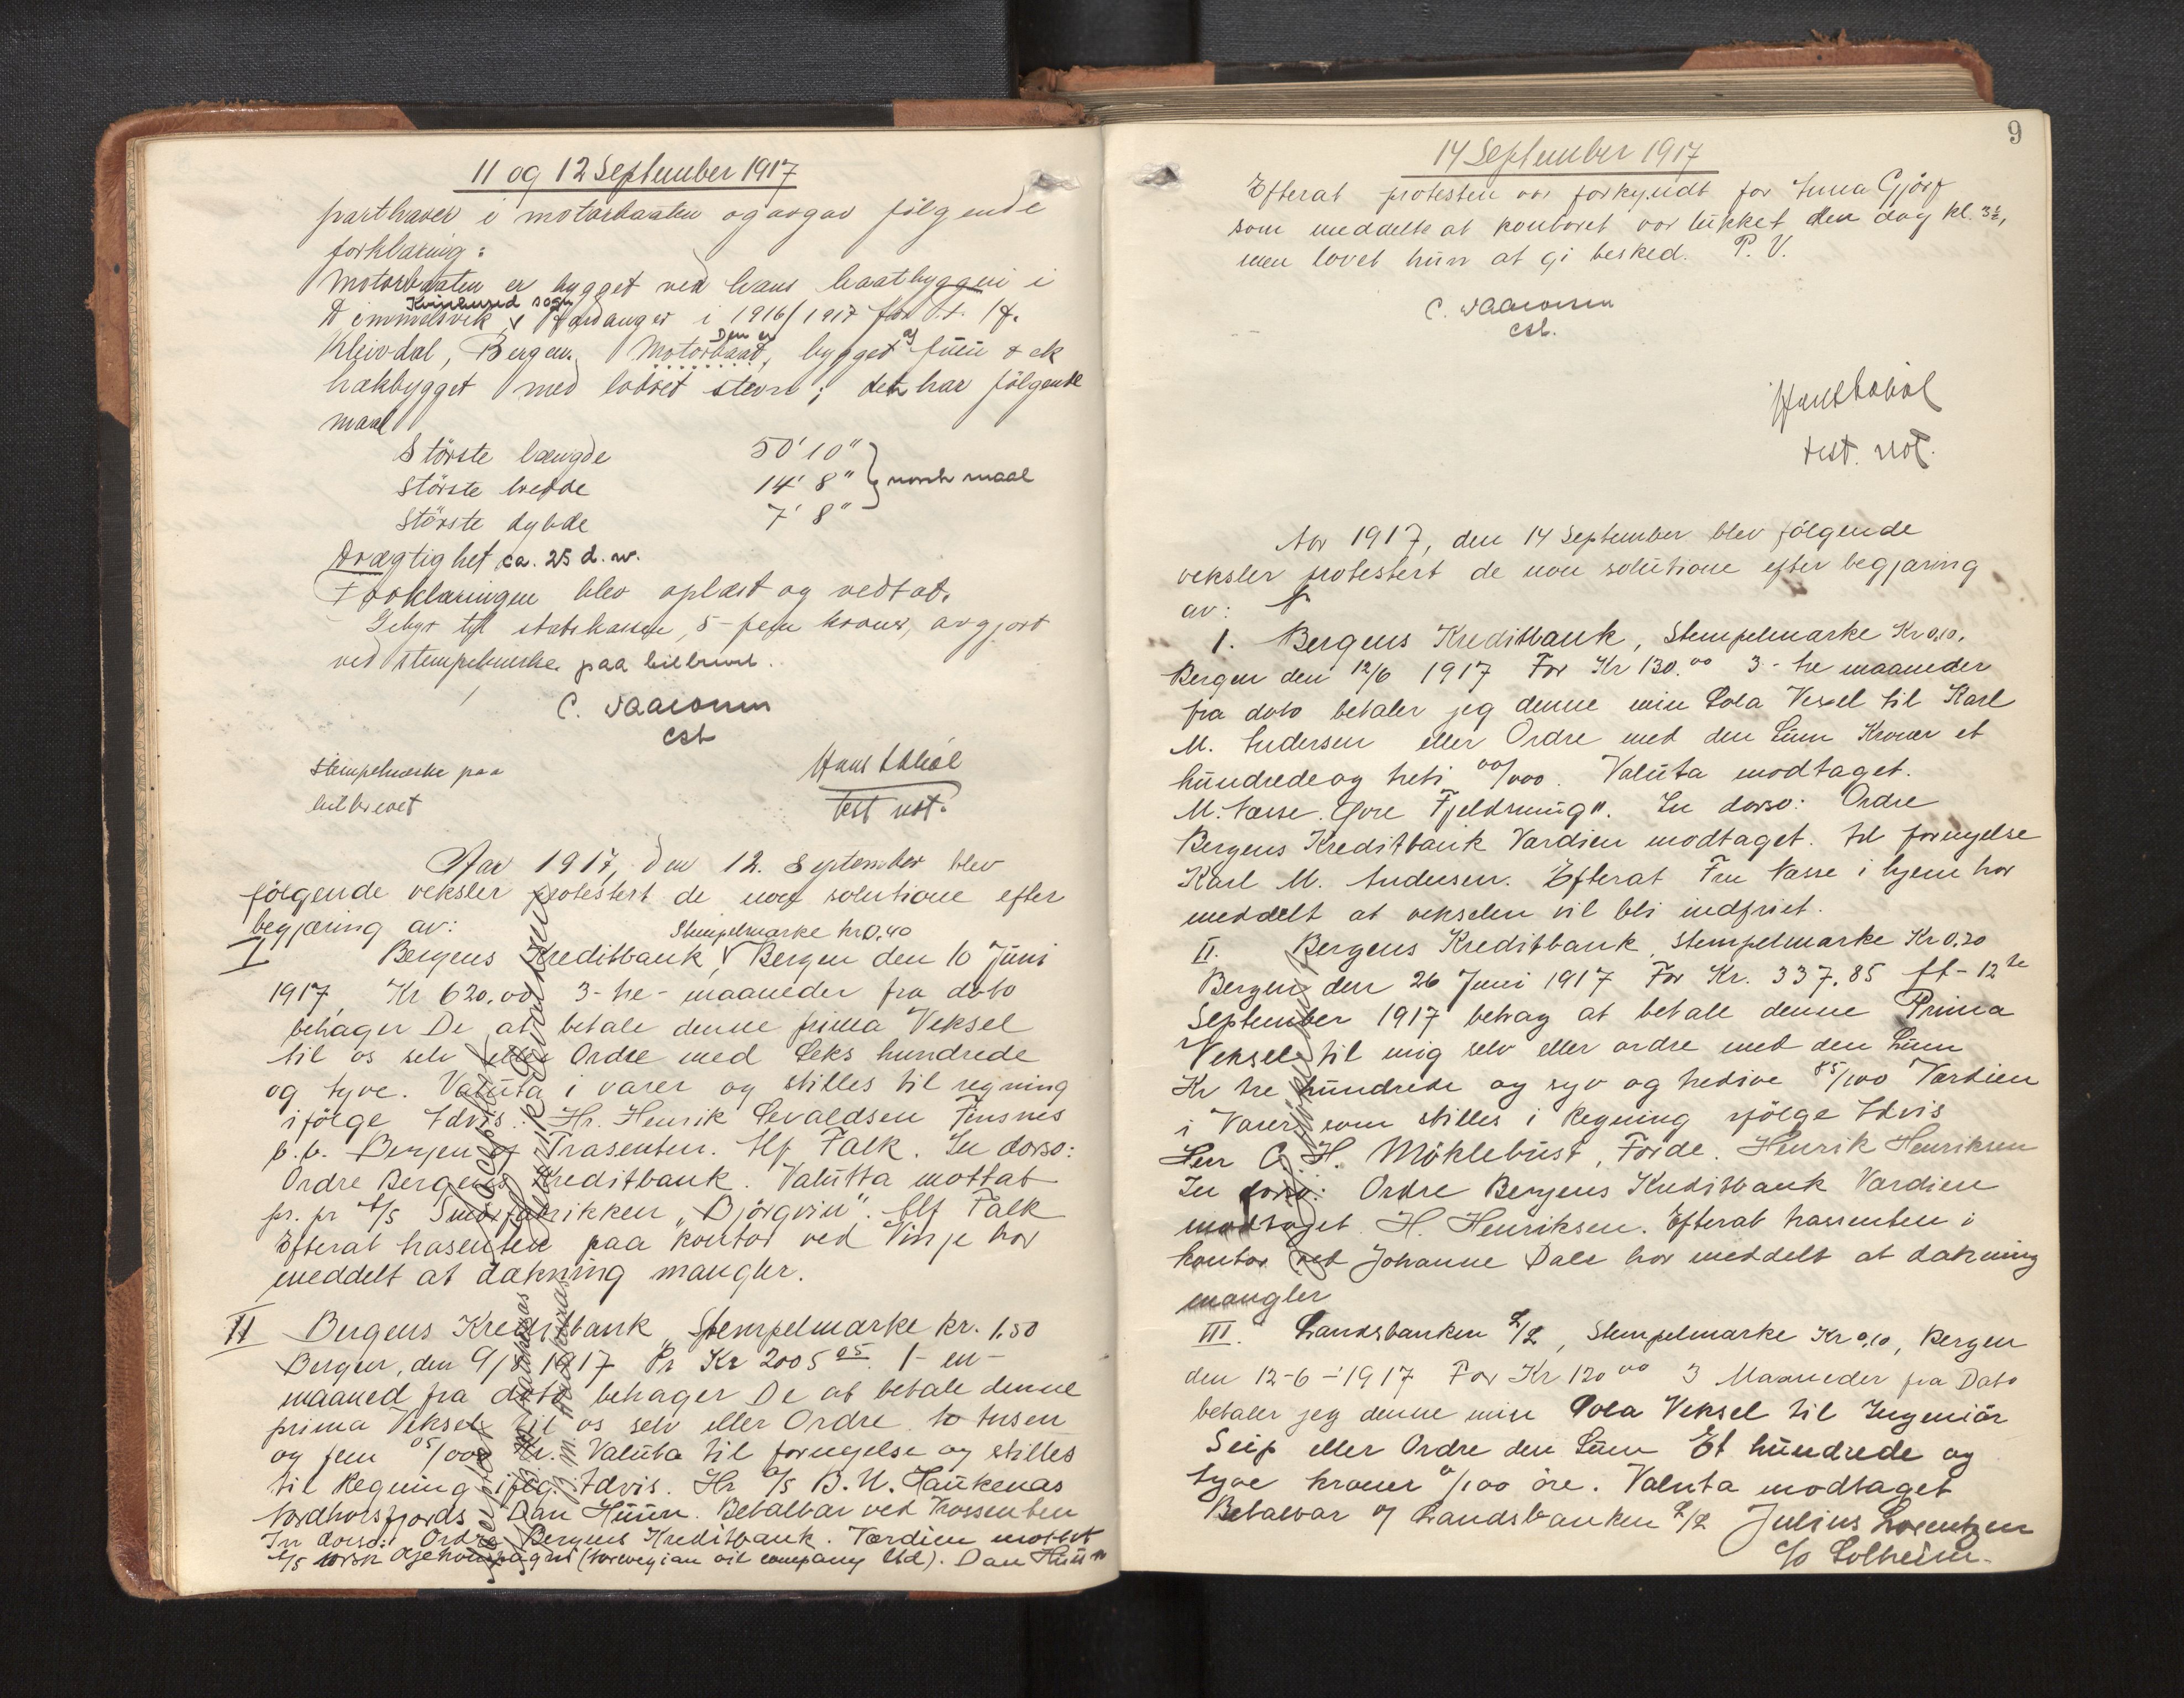 11 og 12 September 1917
parthaver i motorbaaten og avgav følgende
forklaring:
Motorbaaten er bygget ved hans baatbyggeri i
Kvinherred sogn
Dimmelsvik, Hardanger i 1916/1917 for
Den er
Kleivdal, Bergen. Motorbaat, bygget af furu & ek
hækbygget med lodret stevn; den har følgende
maal
Störste længde 50' 10"
Störste bredde 14' 8" norsk maal
Störste dybde 7' 8"
Drægtighet ca. 25 d.w.
Forklaringen blev oplæst og vedtat.
Gebyr til statskassen, 5-fem kroner, avgjort
ved stempelmerke paa bilbrevet.
C.
Stempelmerke paa
bilbrevet
test not.
Aar 1917, den 12. September blev
følgende veksler protestert de non solutione efter
begjæring av: Stempelmærke kr 0,40
I Bergens Kreditbank, Bergen den 10 Juni
1917 Kr 620,00 3-tre-maaneder fra dato
behager De at betale denne prima Veksel
til os selv eller Ordre med Seks hundrede
og tyve. Valuta i varer og stilles til regning
ifölge Advis. Hr. Henrik Sevaldsen Finsnes
p.t. Bergen Trasenten. Alf Falk. In dorso:
Ordre Bergens Kreditbank. Valutta mottat
pr. pr A/S Smørfabrikken "Bjørgvin". Alf Falk
Efterat trasenten paa kontor ved Vinje har
meddelt at dækning mangler.
II Bergens Kreditbank, Stempelmærke kr. 1.50
Bergen, den 9/8 1917 Pr Kr 2005 05. 1-en-
maaned fra dato behager De at betale denne
prima Veksel til os selv eller Ordre to tusen
og fem 05/100 Kr. Valuta til fornyelse og stilles
til Regning iflg. Advis. Hr A/S B. N. Haukenæs
Nordholsfjords Dan Huun. Betalbar ved Trassenten
In dorso: Ordre Bergens Kreditbank. Værdien mottat
A/S Norsk Oljekompagni (Norwegian oil company ltd). Dan Huun
9
14 September 1917
Efterat protesten var forkyndt for Anna Gjörf
som meddelte at kontoret var lukket den dag kl. 3½,
men lovet hun at gi besked. P. V.
C.
test. not.
Aar 1917, den 14 September blev følgende
veksler protestert de non solutione efter begjæring
av:
1. Bergens Kreditbank, Stempelmærke Kr 0,10.
Bergen den 12/6 1917 For Kr 130.00 3-tre maaneder
fra dato betaler jeg denne min Sola Vexel til Karl
M. Andersen eller Ordre med den Sum Kroner et
hundrede og treti 00/000. Valuta modtaget.
M. Næsse. Øvre Fjeldsmug". In dorso: Ordre
Bergens Kreditbank Værdien modtaget. til fornyelse
Karl M. Andersen. Efterat Fru Næsse i hjem har
meddelt at vekselen vil bli indfriet.
II. Bergens Kreditbank, Stempelmærke Kr 0,20
Bergen den 26 Juni 1917 For Kr. 337.85 ft-12te
September 1917 behag at betale denne Prima
Veksel til mig selv eller ordre med den Sum
Kr tre hundrede og syv og tredive 85/100 Værdien
i Varer som stilles i Regning ifölge Advis
Herr C. H. Möklebust, Förde. Henrik Henriksen
In dorso: Ordre Bergens Kreditbank Værdien
modtaget. H. Henriksen. Efterat trassenten i
kontor ved Johanne Dale har meddelt at dækning
mangler
III. Landsbanken A/S, Stempelmærke Kr 0,10, Bergen
den 12-6-1917 For Kr 120 00 3 Maaneder fra Dato
betaler jeg denne min Sola Veksel til Ingeniör
Seip eller Ordre den Sum Et hundrede og
tyve kroner 0/100 öre. Valuta modtaget
Betalbar i Landsbanken A/S Julius Lorentzen
c/o Solheim.